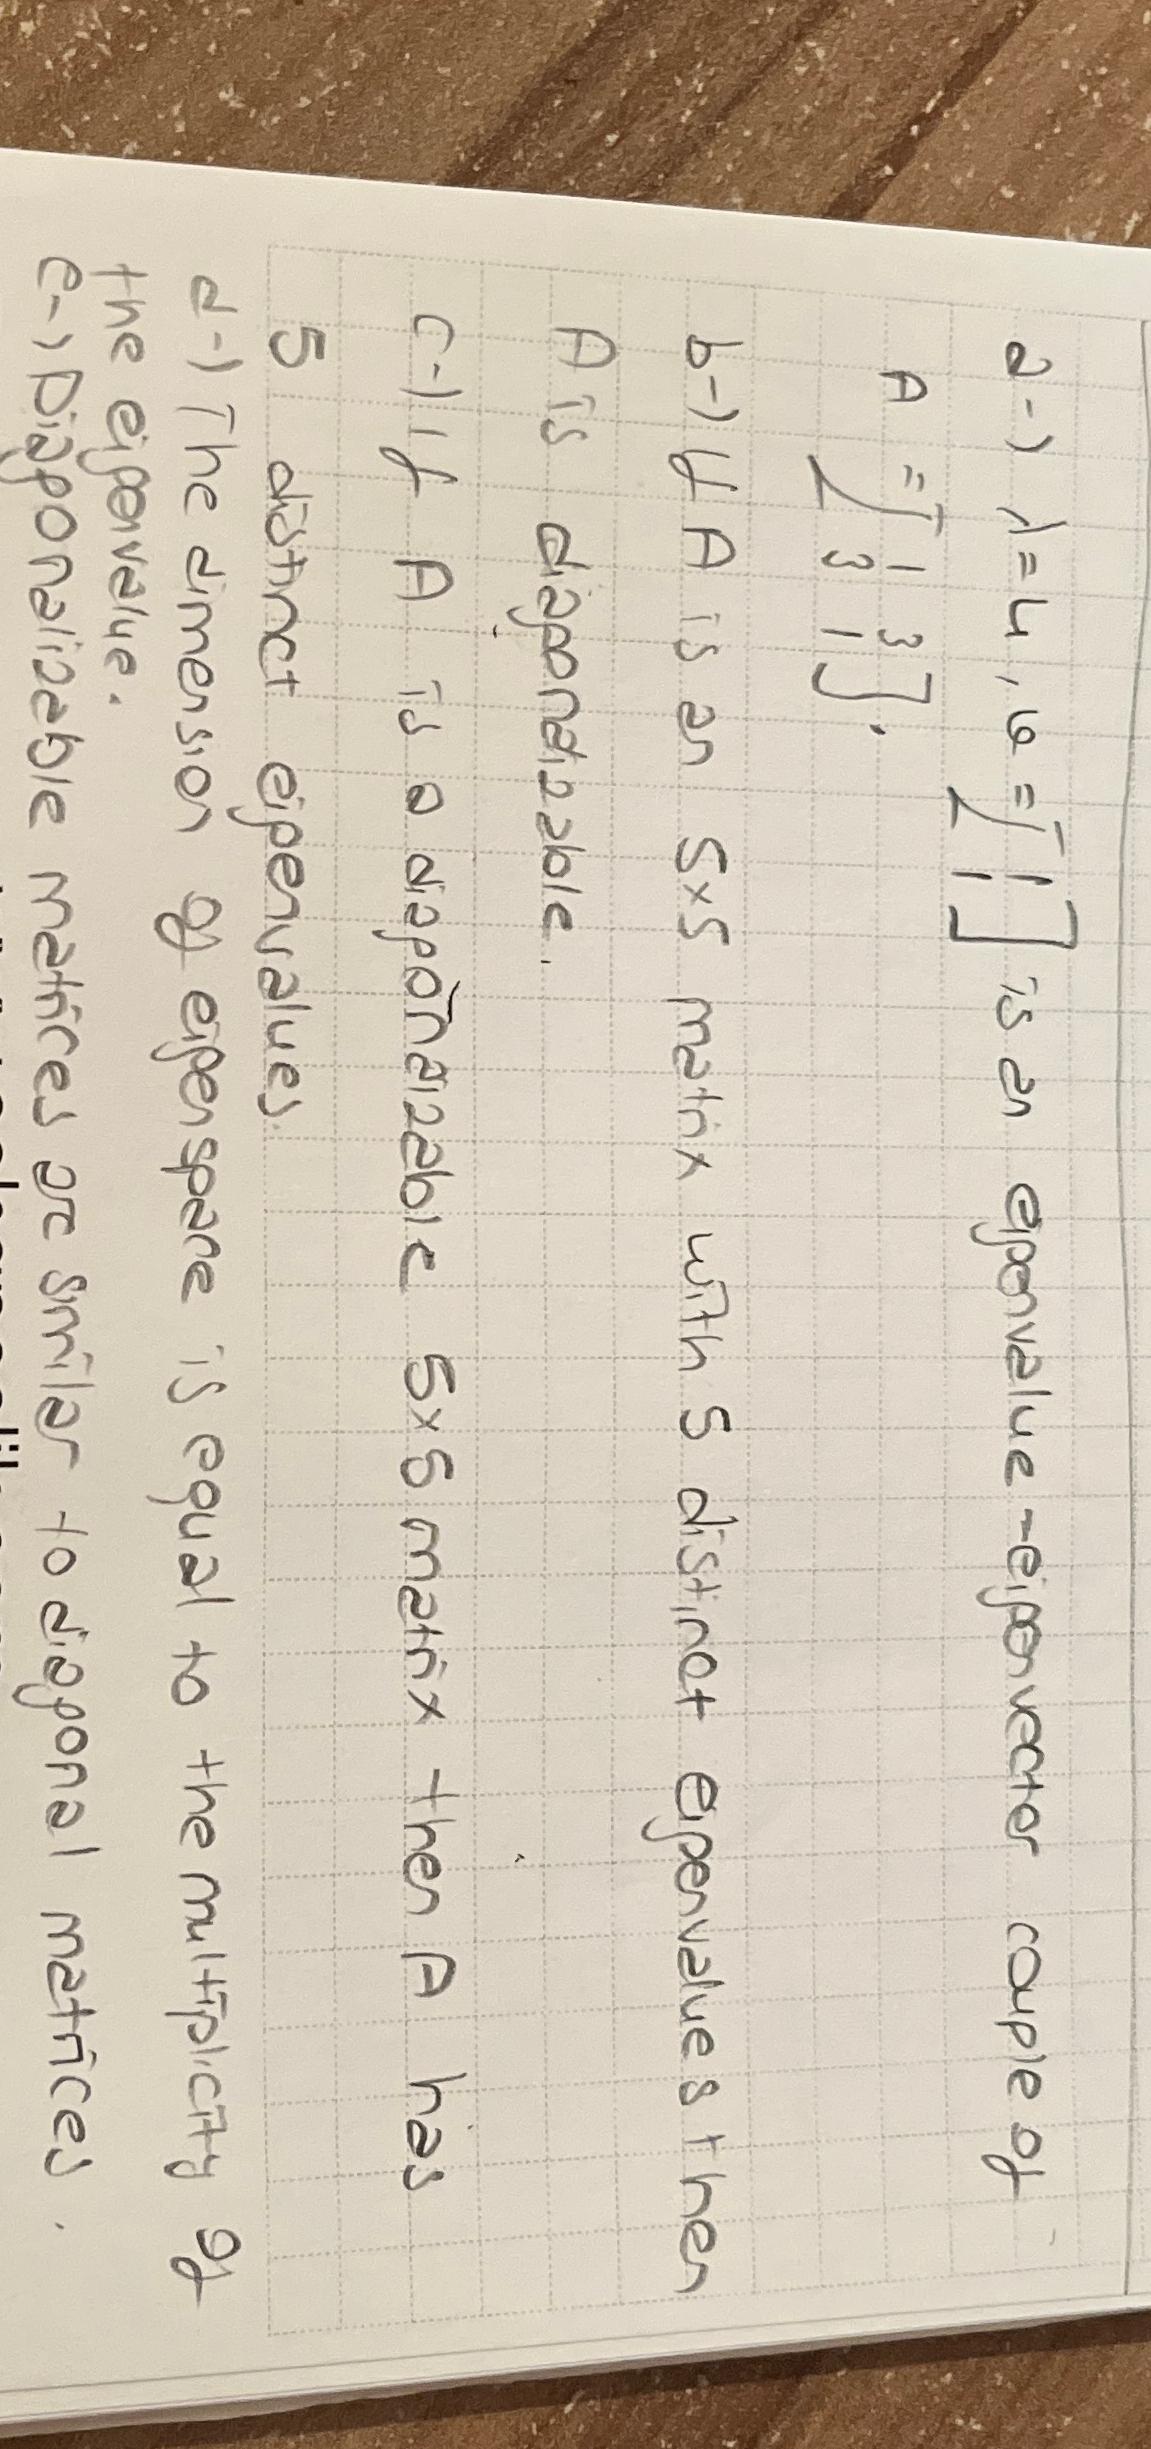 a-) λ=4, v = [1 1] is an eigenvalue-eigenvector couple of
A = [1 3
3 1].
b-) If A is an 5x5 matrix with 5 distinct eigenvalues then
A is diagonalizable.
c-) If A is a diagonalizable 5x5 matrix then A has
5 distinct eigenvalues.
d-) The dimension of eigenspace is equal to the multiplicity of
the eigenvalue.
e-) Diagonalizable matrices are similar to diagonal matrices.